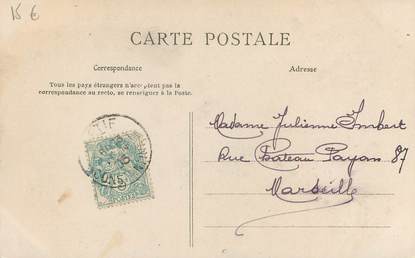 15 €
CARTE POSTALE
Correspondance
Adresse
Tous les pays étrangers n'acceptent pas la
correspondance au recto, se renseigner à la Poste.
Madame Julienne Imbert
Rue Chateau Payan 87
Marseille